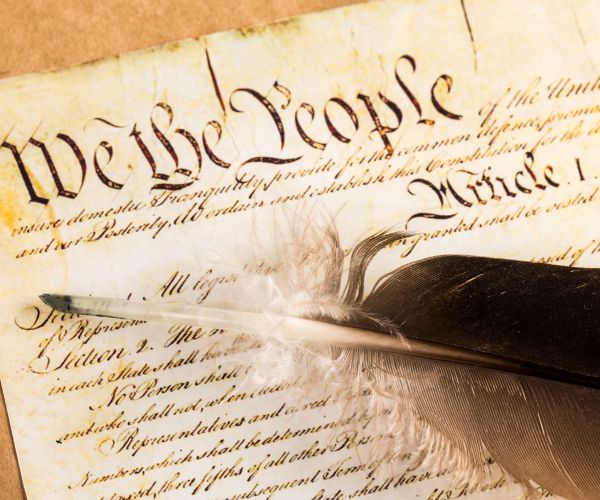 We the People of the Unite
insure domestic Tranquility, provide for the common defence, promo
and our Posterity, do ordain and establish this Constitution for the
Article. I.
Section. 1. All legisl
granted shall be vested
of Represen
Section. 2. The
in each State shall have
No Person shall
and who shall not, when elected, be
Representatives and direct
Numbers, which shall be determined by
three fifths of all other Persons
subsequent Term of ten
shall have